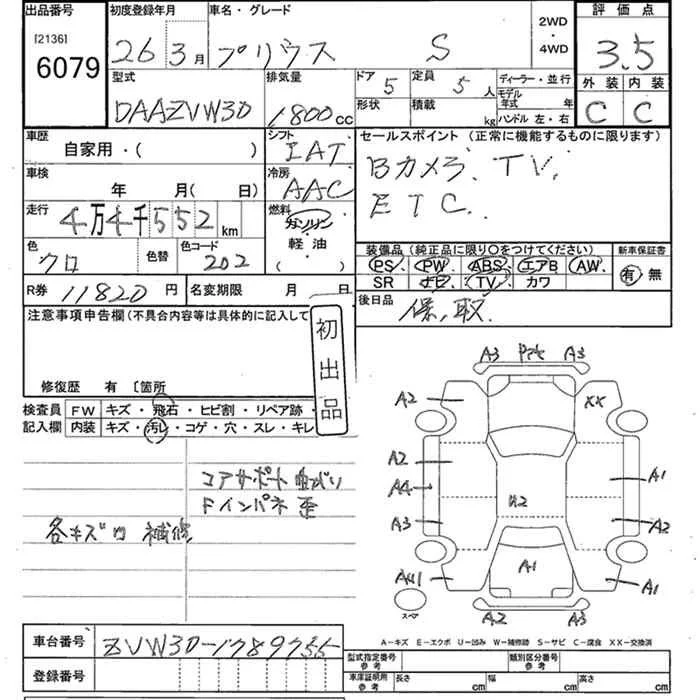 出品番号
[2136]
6079
初度登録年月
26年3月
車名・グレード
プリウス S
2WD
・
4WD
評価点
3.5
外装 内装
C C
型式
DAAZVW30
排気量
1800cc
ドア 5
定員 5人
形状
積載 kg
ディーラー・並行
モデル年式 年
ハンドル 左・右
車歴
自家用・( )
シフト
IAT
セールスポイント(正常に機能するものに限ります)
Bカメラ. TV.
ETC.
車検
年 月( 日)
冷房
AAC
走行
4万4千552km
燃料
ガソリン
軽・油
( )
色
クロ
色替
色コード
202
装備品(純正品に限り○をつけてください)
PS. PW. ABS. エアB AW.
SR ナビ TV. カワ
新車保証書
有・無
R券 11820円
名変期限 月 日
後日品
保,取.
注意事項申告欄(不具合内容等は具体的に記入して
修復歴 有 〔箇所
初出品
検査員
記入欄
FW キズ・飛石・ヒビ割・リペア跡・
内装 キズ・汚レ・コゲ・穴・スレ・キレ
コアサポート曲がり
Fインパネ歪
各キズ凹 補修
A3 A3
A2 XX
A2 A1
A4
A3 A2
A1
A1
A2 A3
スペア
A-キズ E-エクボ U-凹み W-補修跡 S-サビ C-腐食 XX-交換済
車台番号
登録番号
型式指定番号
参考
類別区分番号
参考
車庫証明用
参考
長さ cm
幅 cm
高さ cm